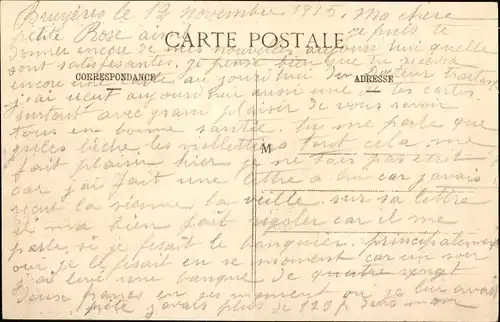 Bruyères le 12 novembre 1915. Ma chère
petite Rose je puis te
CARTE POSTALE
donner encore de mes nouvelles aujourd'hui quelle
sont satisfesantes. je pense bien que tu recevra
CORRESPONDANCE
ADRESSE
encore une carte au jourd'hui du
j'ai reçut aujourd'hui une de tes cartes
surtout avec grand plaisir de vous savoir
tous en bonne santée. tu me parle que
lèche les mollettes tout cela me
M
fait plaisir hier je ne pas
car j'ai fait une lettre a lui car j'avais
reçut la sienne la veille sur sa lettre
il m'a bien fait rigoler car il me
parle si je fesait le banquier principalement
oui je le fisait en se moment car un soir
j'ai levé une banque de quatre vengt
deux francs en ses moment ou je lui avait
j'avais plus de 120 f dans mon